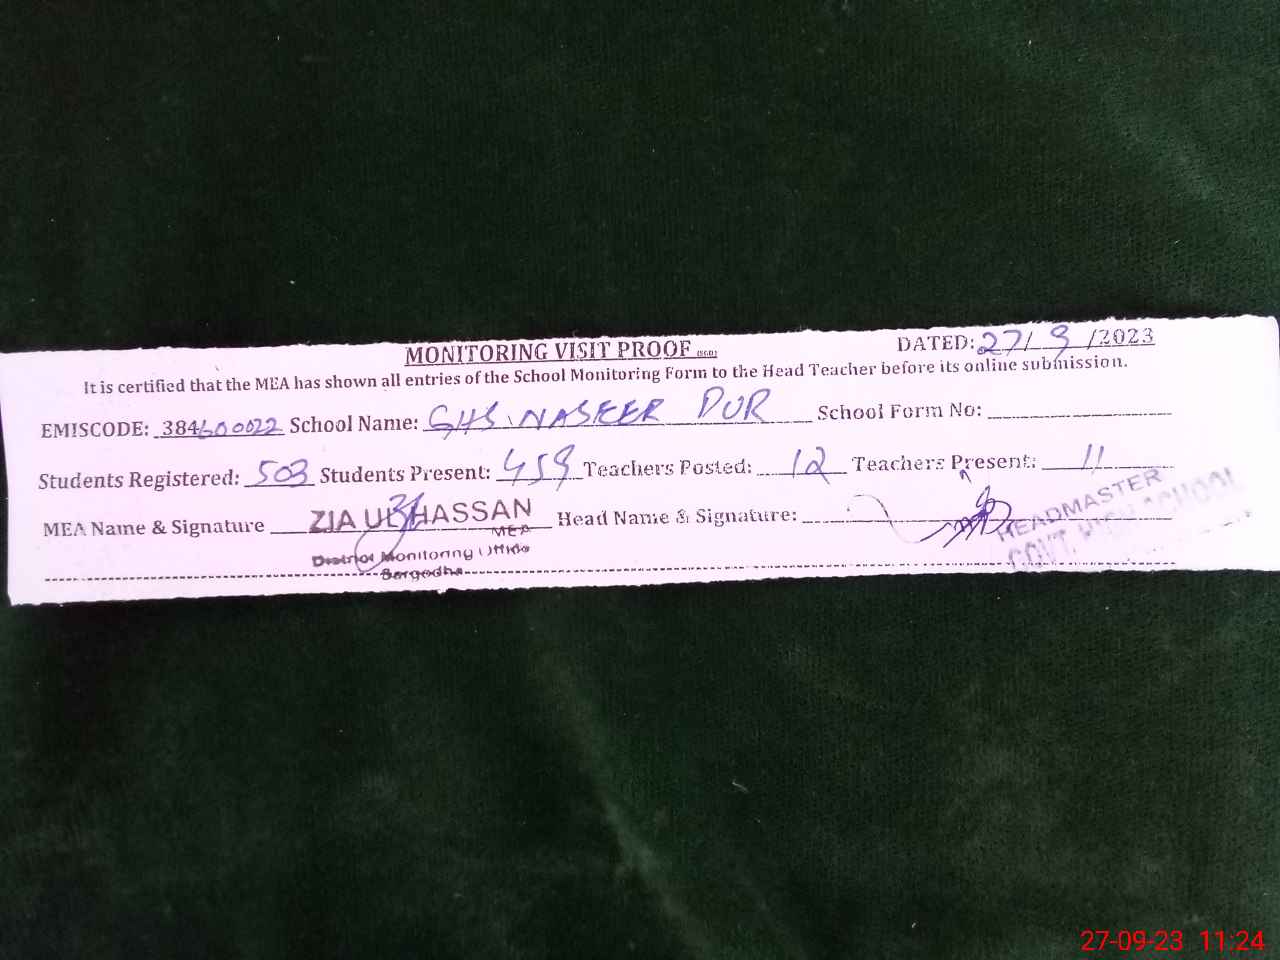 MONITORING VISIT PROOF (SGD) DATED: 27/ 9 /2023
It is certified that the MEA has shown all entries of the School Monitoring Form to the Head Teacher before its online submission.
EMISCODE: 38460022 School Name: GHS NASEER PUR School Form No:
Students Registered: 503 Students Present: 459 Teachers Posted: 12 Teachers Present: 11
MEA Name & Signature ZIA UL HASSAN Head Name & Signature:
MEA
District Monitoring Office
Sargodha
HEADMASTER
GOVT. HIGH SCHOOL
27-09-23 11:24